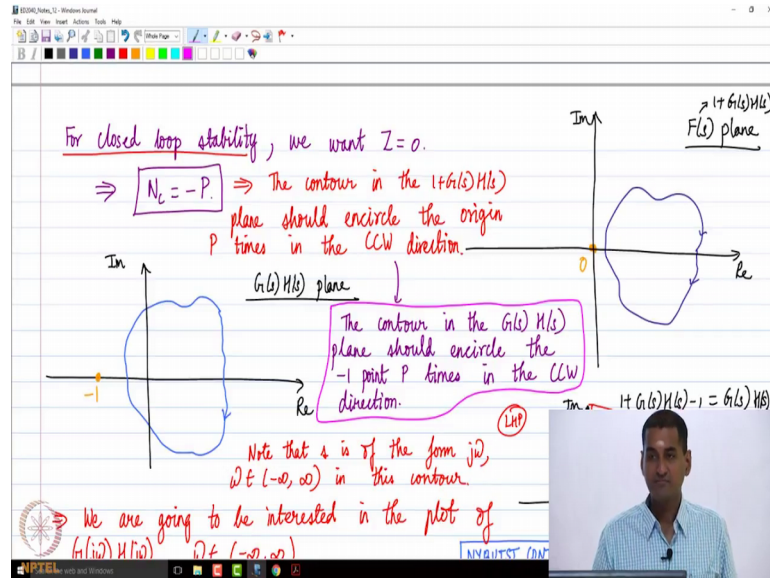 ED2040_Notes_12 - Windows Journal
File Edit View Insert Actions Tools Help
Whole Page
B I
For closed loop stability, we want Z=0.
⇒ N_c = -P. ⇒ The contour in the 1+G(s)H(s)
plane should encircle the origin
P times in the CCW direction.
Im
1+G(s)H(s)
F(s) plane
0
Re
Im
G(s)H(s) plane
-1
Re
The contour in the G(s) H(s)
plane should encircle the
-1 point P times in the CCW
direction.
Im
1+G(s)H(s)-1 = G(s)H(s)
LHP
Note that s is of the form jω,
ω ∈ (-∞, ∞) in this contour.
⇒ We are going to be interested in the plot of
G(jω)H(jω) ω ∈ (-∞, ∞)
NYQUIST CON
NPTEL
web and Windows